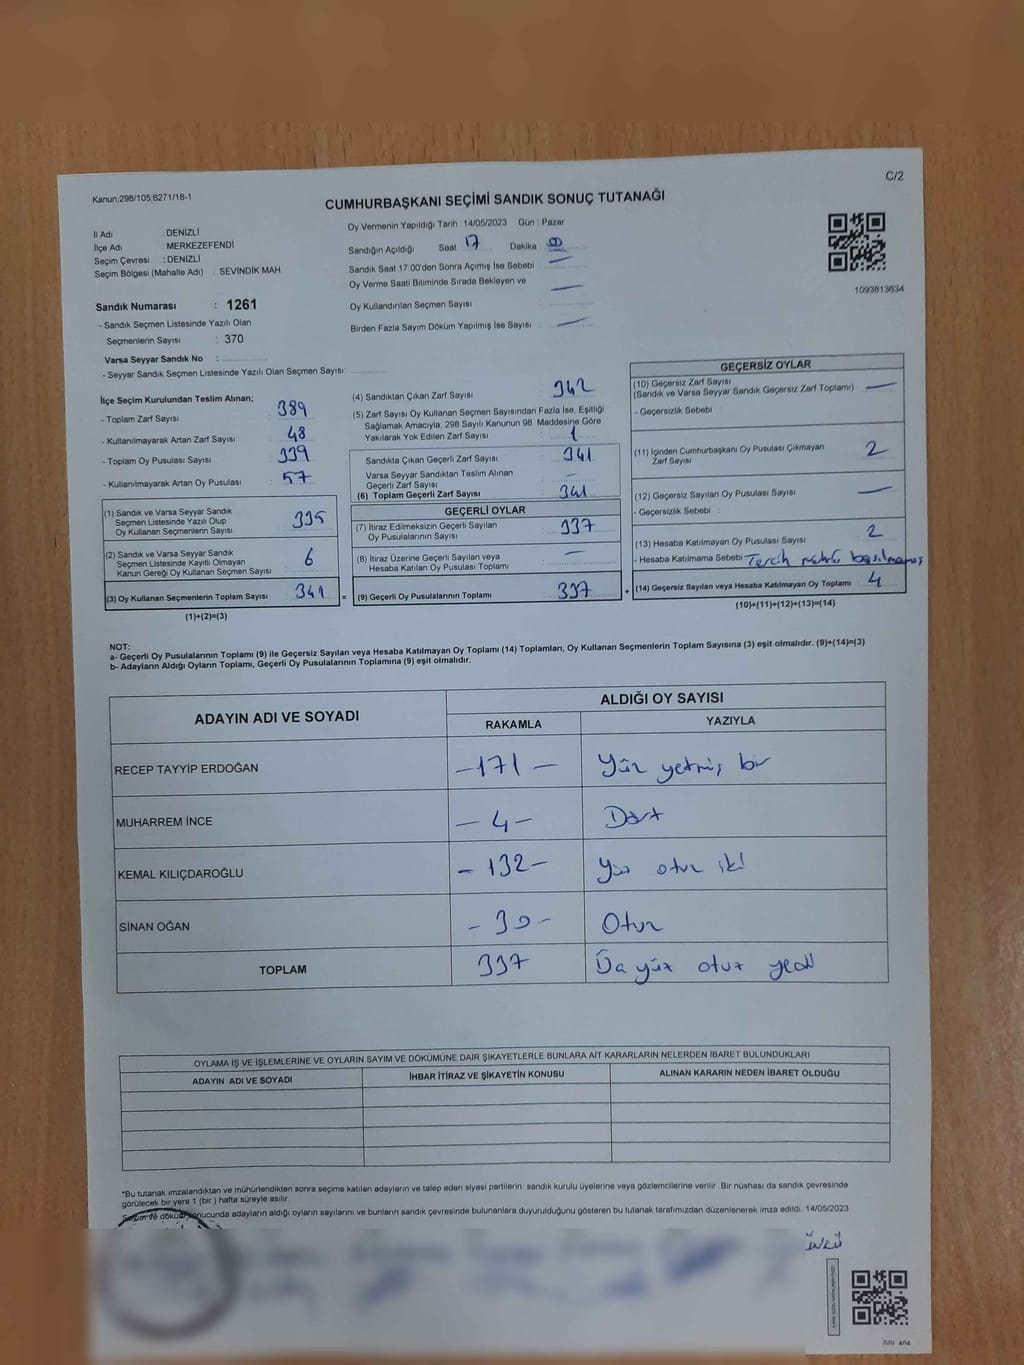 Kanun,298/105,6271/18-1
C/2
CUMHURBAŞKANI SEÇİMİ SANDIK SONUÇ TUTANAĞI
İl Adı : DENİZLİ
İlçe Adı : MERKEZEFENDİ
Seçim Çevresi : DENİZLİ
Seçim Bölgesi (Mahalle Adı) : SEVİNDİK MAH.
Sandık Numarası : 1261
- Sandık Seçmen Listesinde Yazılı Olan
Seçmenlerin Sayısı : 370
Varsa Seyyar Sandık No :
- Seyyar Sandık Seçmen Listesinde Yazılı Olan Seçmen Sayısı:
Oy Vermenin Yapıldığı Tarih : 14/05/2023 Gün : Pazar
Sandığın Açıldığı Saat 17 Dakika
Sandık Saat 17:00'den Sonra Açımış İse Sebebi
Oy Verme Saati Bitiminde Sırada Bekleyen ve
Oy Kullandırılan Seçmen Sayısı
Birden Fazla Sayım Döküm Yapılmış İse Sayısı :
1093813634
İlçe Seçim Kurulundan Teslim Alınan;
- Toplam Zarf Sayısı : 389
- Kullanılmayarak Artan Zarf Sayısı : 48
- Toplam Oy Pusulası Sayısı : 339
- Kullanılmayarak Artan Oy Pusulası : 57
(1) Sandık ve Varsa Seyyar Sandık
Seçmen Listesinde Yazılı Olup
Oy Kullanan Seçmenlerin Sayısı 335
(2) Sandık ve Varsa Seyyar Sandık
Seçmen Listesinde Kayıtlı Olmayan
Kanun Gereği Oy Kullanan Seçmen Sayısı 6
(3) Oy Kullanan Seçmenlerin Toplam Sayısı 341 =
(1)+(2)=(3)
(4) Sandıktan Çıkan Zarf Sayısı : 342
(5) Zarf Sayısı Oy Kullanan Seçmen Sayısından Fazla İse, Eşitliği
Sağlamak Amacıyla, 298 Sayılı Kanunun 98. Maddesine Göre
Yakılarak Yok Edilen Zarf Sayısı : 1
Sandıkta Çıkan Geçerli Zarf Sayısı : 341
Varsa Seyyar Sandıktan Teslim Alınan
Geçerli Zarf Sayısı
(6) Toplam Geçerli Zarf Sayısı : 341
GEÇERLİ OYLAR
(7) İtiraz Edilmeksizin Geçerli Sayılan
Oy Pusulalarının Sayısı : 337
(8) İtiraz Üzerine Geçerli Sayılan veya
Hesaba Katılan Oy Pusulası Toplamı :
(9) Geçerli Oy Pusulalarının Toplamı : 337 +
GEÇERSİZ OYLAR
(10) Geçersiz Zarf Sayısı
(Sandık ve Varsa Seyyar Sandık Geçersiz Zarf Toplamı)
- Geçersizlik Sebebi :
(11) İçinden Cumhurbaşkanı Oy Pusulası Çıkmayan
Zarf Sayısı 2
(12) Geçersiz Sayılan Oy Pusulası Sayısı :
- Geçersizlik Sebebi :
(13) Hesaba Katılmayan Oy Pusulası Sayısı : 2
- Hesaba Katılmama Sebebi : Tercih mührü basılmamış
(14) Geçersiz Sayılan veya Hesaba Katılmayan Oy Toplamı 4
(10)+(11)+(12)+(13)=(14)
NOT:
a- Geçerli Oy Pusulalarının Toplamı (9) ile Geçersiz Sayılan veya Hesaba Katılmayan Oy Toplamı (14) Toplamları, Oy Kullanan Seçmenlerin Toplam Sayısına (3) eşit olmalıdır. (9)+(14)=(3)
b- Adayların Aldığı Oyların Toplamı, Geçerli Oy Pusulalarının Toplamına (9) eşit olmalıdır.
ADAYIN ADI VE SOYADI
ALDIĞI OY SAYISI
RAKAMLA YAZIYLA
RECEP TAYYİP ERDOĞAN - 171 - Yüz yetmiş bir
MUHARREM İNCE - 4 - Dört
KEMAL KILIÇDAROĞLU - 132 - Yüz otuz iki
SİNAN OĞAN - 30 - Otuz
TOPLAM 337 Üç yüz otuz yedi
OYLAMA İŞ VE İŞLEMLERİNE VE OYLARIN SAYIM VE DÖKÜMÜNE DAİR ŞİKAYETLERLE BUNLARA AİT KARARLARIN NELERDEN İBARET BULUNDUKLARI
ADAYIN ADI VE SOYADI İHBAR İTİRAZ VE ŞİKAYETİN KONUSU ALINAN KARARIN NEDEN İBARET OLDUĞU
*Bu tutanak imzalandıktan ve mühürlendikten sonra seçime katılan adayların ve talep eden siyasi partilerin sandık kurulu üyelerine veya gözlemcilerine verilir. Bir nüshası da sandık çevresinde
görülecek bir yere 1 (bir) hafta süreyle asılır.
Sayım ve döküm sonucunda adayların aldığı oyların sayılarını ve bunların sandık çevresinde bulunanlara duyurulduğunu gösteren bu tutanak tarafımızdan düzenlenerek imza edildi. 14/05/2023